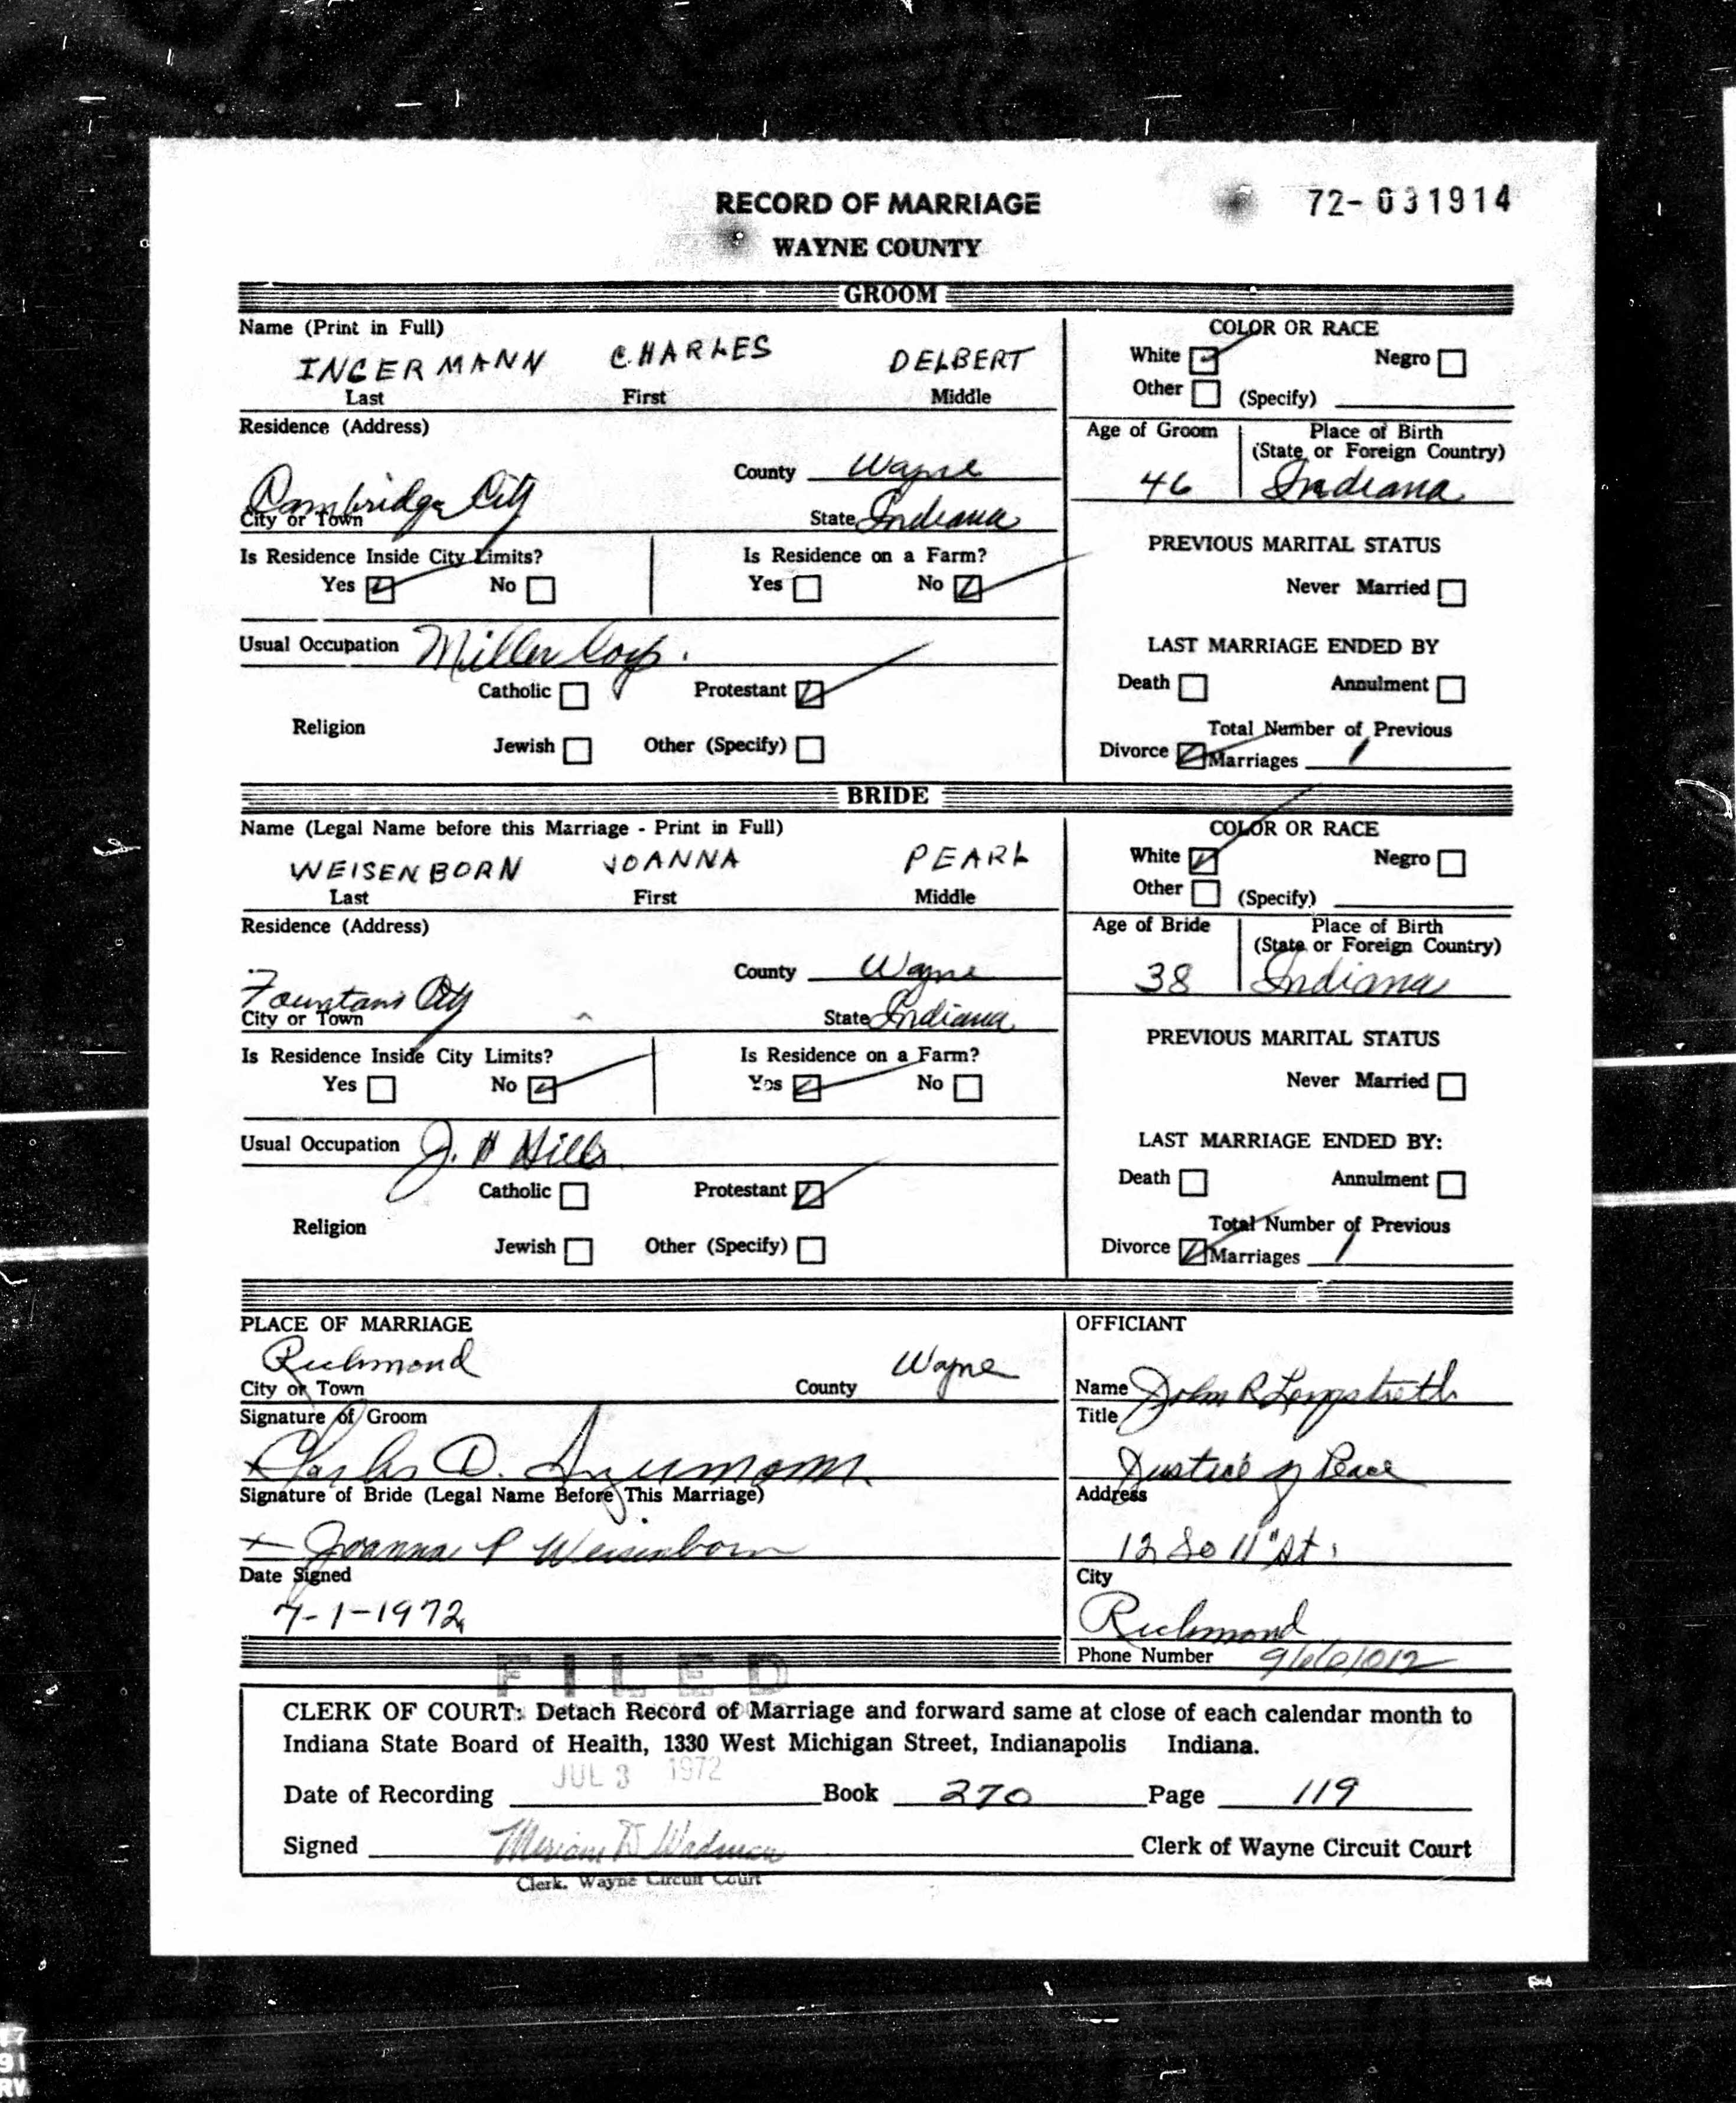 RECORD OF MARRIAGE
72-031914
WAYNE COUNTY
GROOM
Name (Print in Full)
INGERMANN CHARLES DELBERT
Last First Middle
COLOR OR RACE
White Negro
Other (Specify)
Residence (Address)
County Wayne
Cambridge City
City or Town
State Indiana
Age of Groom
46
Place of Birth
(State or Foreign Country)
Indiana
Is Residence Inside City Limits?
Yes No
Is Residence on a Farm?
Yes No
PREVIOUS MARITAL STATUS
Never Married
Usual Occupation Miller Corp.
LAST MARRIAGE ENDED BY
Death Annulment
Catholic Protestant
Religion
Jewish Other (Specify)
Total Number of Previous
Divorce Marriages 1
BRIDE
Name (Legal Name before this Marriage - Print in Full)
WEISENBORN JOANNA PEARL
Last First Middle
COLOR OR RACE
White Negro
Other (Specify)
Residence (Address)
County Wayne
Fountain City
City or Town
State Indiana
Age of Bride
38
Place of Birth
(State or Foreign Country)
Indiana
Is Residence Inside City Limits?
Yes No
Is Residence on a Farm?
Yes No
PREVIOUS MARITAL STATUS
Never Married
Usual Occupation J. H Hills
LAST MARRIAGE ENDED BY:
Death Annulment
Catholic Protestant
Religion
Jewish Other (Specify)
Total Number of Previous
Divorce Marriages 1
PLACE OF MARRIAGE
Richmond Wayne
City or Town County
Signature of Groom
x Charles D. Ingermann
Signature of Bride (Legal Name Before This Marriage)
x Joanna P Weisenborn
Date Signed
7-1-1972
OFFICIANT
Name John R Longstreth
Title
Justice of Peace
Address
12 So 11" St.
City
Richmond
Phone Number 9661012
FILED
CLERK OF COURT: Detach Record of Marriage and forward same at close of each calendar month to
Indiana State Board of Health, 1330 West Michigan Street, Indianapolis Indiana.
JUL 3 1972
Date of Recording Book 270 Page 119
Signed Miriam D Wadman Clerk of Wayne Circuit Court
Clerk, Wayne Circuit Court